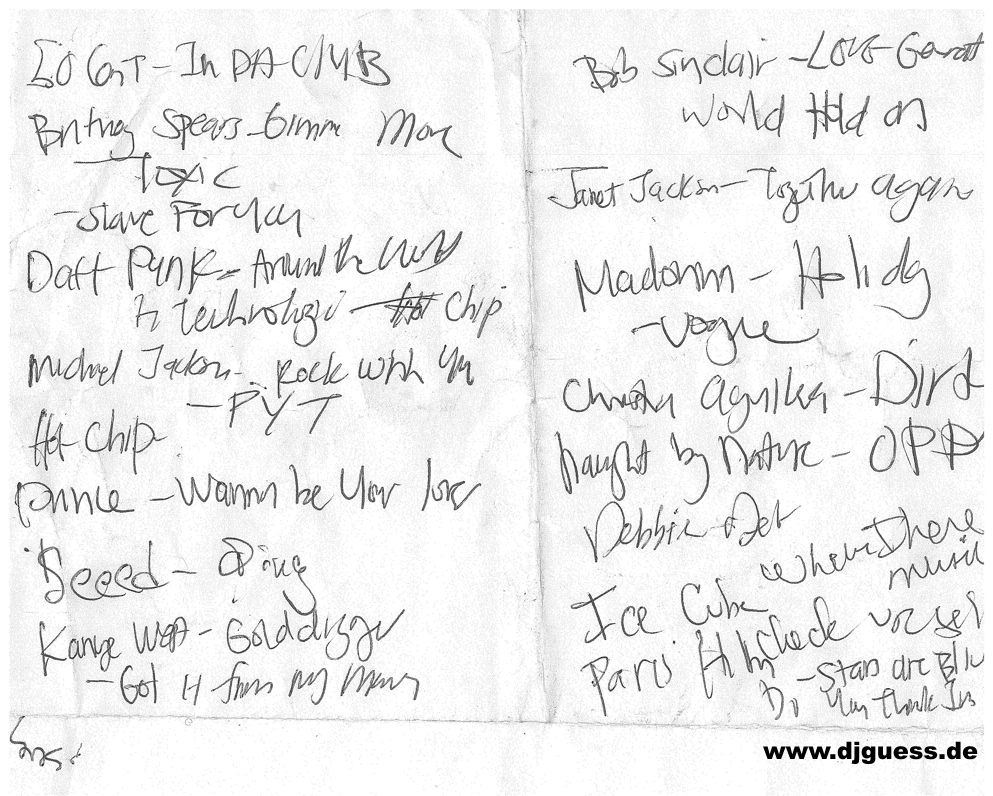 50 Cent - In DA CLUB
Britney Spears - Gimme More
Toxic
- Slave For You
Daft Punk - Around the World
Technologic - Hot Chip
Michael Jackson - Rock with You
- PYT
Hot Chip
Prince - Wanna be Your lover
Seeed - Ding
Kanye West - Golddigger
- Got it from my Mama
Bob Sinclair - Love Generat
World Hold on
Janet Jackson - Together again
Madonna - Holiday
- Vogue
Christina Aguilera - Dird
Naught by Nature - OPP
Debbie
Where There
music
Ice Cube
Check
Paris Hilton - Stars are Blin
Do You think Im
www.djguess.de